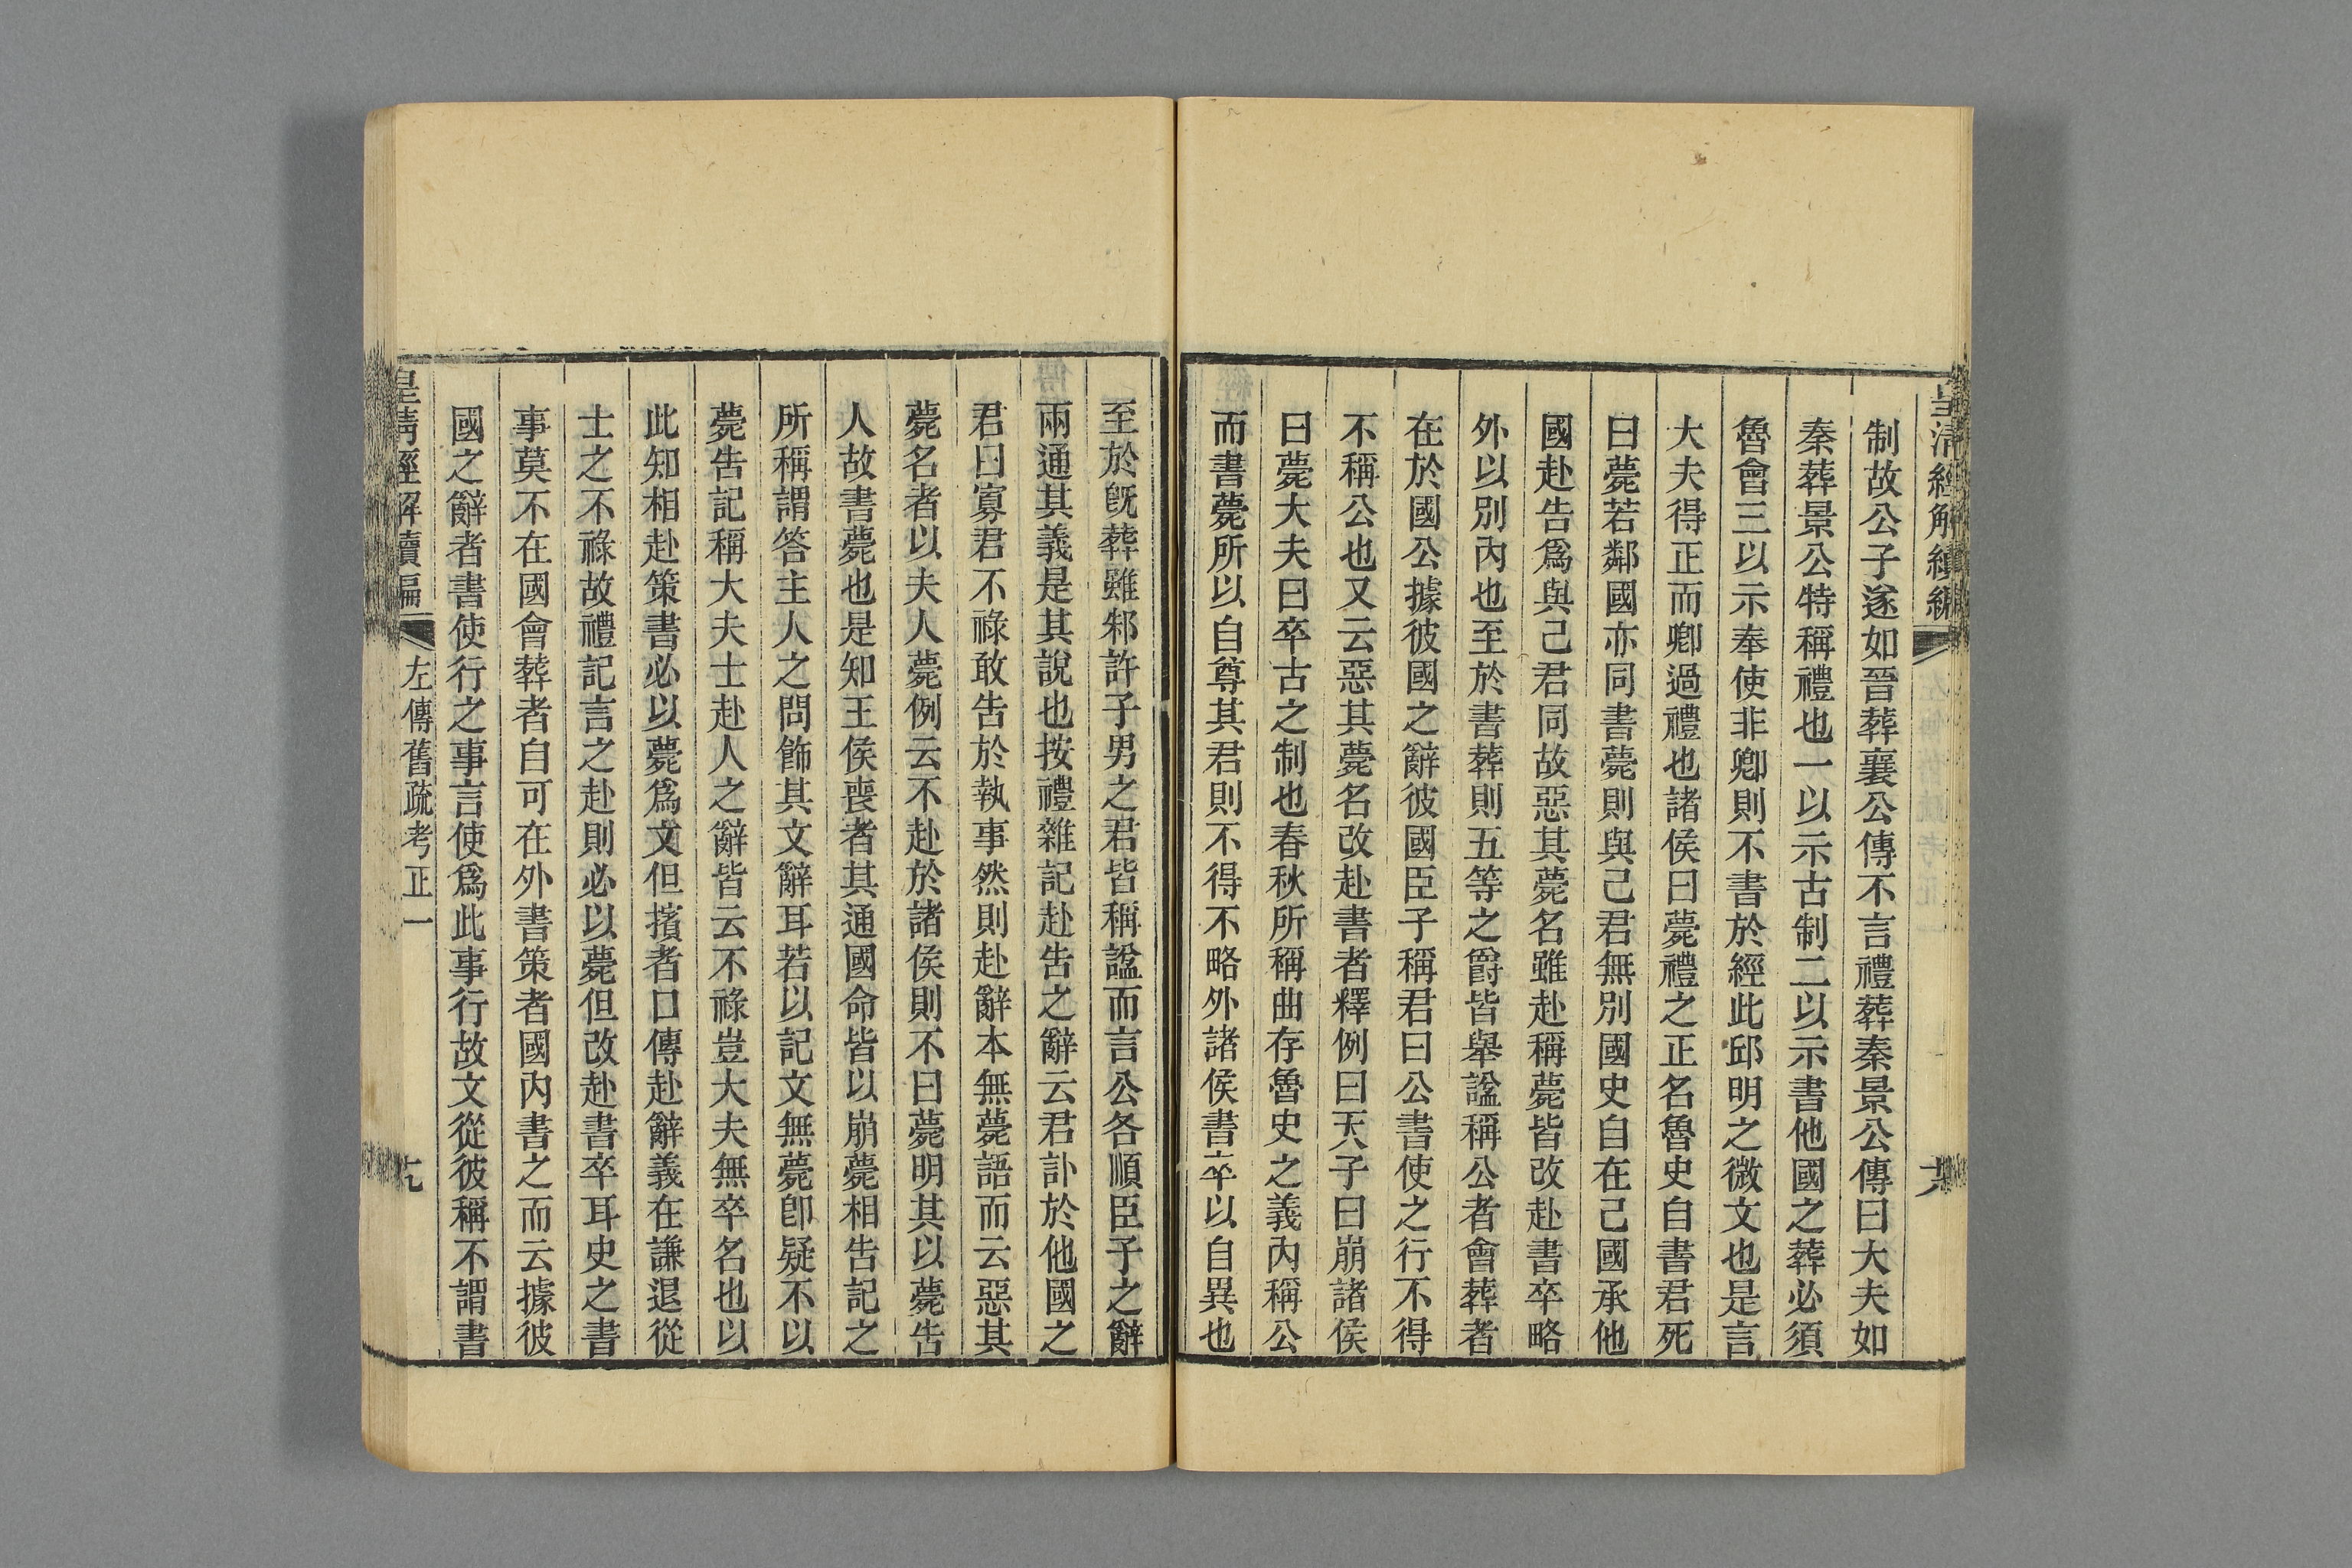 皇清經解續編
制故公子遂如晉葬襄公傳不言禮葬秦景公傳曰大夫如
秦葬景公特稱禮也一以示古制二以示書他國之葬必須
魯會三以示奉使非卿則不書於經此邱明之微文也是言
大夫得正而卿過禮也諸侯曰薨禮之正名魯史自書君死
曰薨若鄰國亦同書薨則與己君無別國史自在己國承他
國赴告爲與己君同故惡其薨名雖赴稱薨皆改赴書卒略
外以別內也至於書葬則五等之爵皆舉諡稱公者會葬者
在於國公據彼國之辭彼國臣子稱君曰公書使之行不得
不稱公也又云惡其薨名改赴書者釋例曰天子曰崩諸侯
曰薨大夫曰卒古之制也春秋所稱曲存魯史之義內稱公
而書薨所以自尊其君則不得不略外諸侯書卒以自異也
至於旣葬雖邾許子男之君皆稱諡而言公各順臣子之辭
兩通其義是其說也按禮雜記赴告之辭云君訃於他國之
君曰寡君不祿敢告於執事然則赴辭本無薨語而云惡其
薨名者以夫人薨例云不赴於諸侯則不曰薨明其以薨告
人故書薨也是知王侯喪者其通國命皆以崩薨相告記之
所稱謂答主人之問飾其文辭耳若以記文無薨卽疑不以
薨告記稱大夫士赴人之辭皆云不祿豈大夫無卒名也以
此知相赴策書必以薨爲文但擯者口傳赴辭義在謙退從
士之不祿故禮記言之赴則必以薨但改赴書卒耳史之書
事莫不在國會葬者自可在外書策者國內書之而云據彼
國之辭者書使行之事言使爲此事行故文從彼稱不謂書
皇清經解續編
左傳舊疏考正一